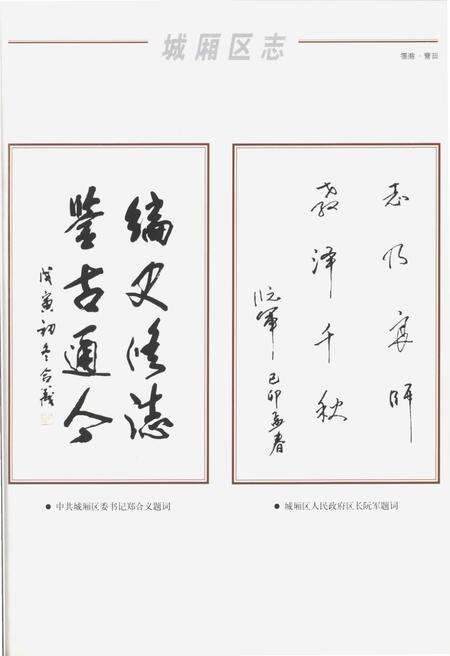 城厢区志
编史修志
鉴古通今
戊寅初冬合義
志乃宾师
教泽千秋
阮军
己卯孟春
● 中共城厢区委书记郑合义题词
● 城厢区人民政府区长阮军题词